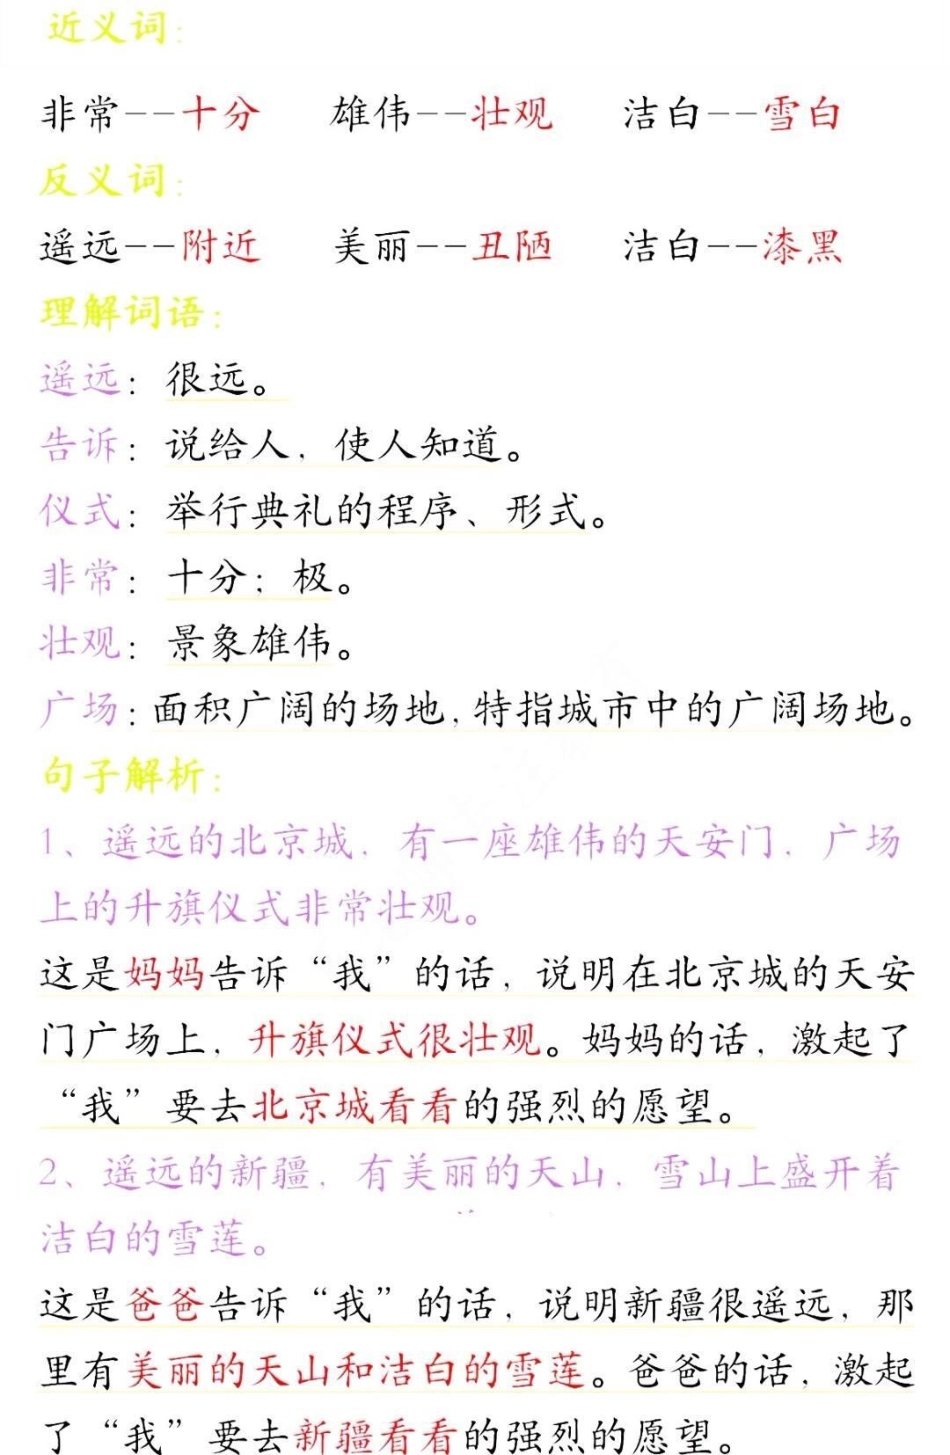 近义词:
非常——十分 雄伟——壮观 洁白——雪白
反义词:
遥远——附近 美丽——丑陋 洁白——漆黑
理解词语:
遥远：很远。
告诉：说给人，使人知道。
仪式：举行典礼的程序、形式。
非常：十分；极。
壮观：景象雄伟。
广场：面积广阔的场地，特指城市中的广阔场地。
句子解析:
1、遥远的北京城，有一座雄伟的天安门，广场
上的升旗仪式非常壮观。
这是妈妈告诉“我”的话，说明在北京城的天安
门广场上，升旗仪式很壮观。妈妈的话，激起了
“我”要去北京城看看的强烈的愿望。
2、遥远的新疆，有美丽的天山，雪山上盛开着
洁白的雪莲。
这是爸爸告诉“我”的话，说明新疆很遥远，那
里有美丽的天山和洁白的雪莲。爸爸的话，激起
了“我”要去新疆看看的强烈的愿望。